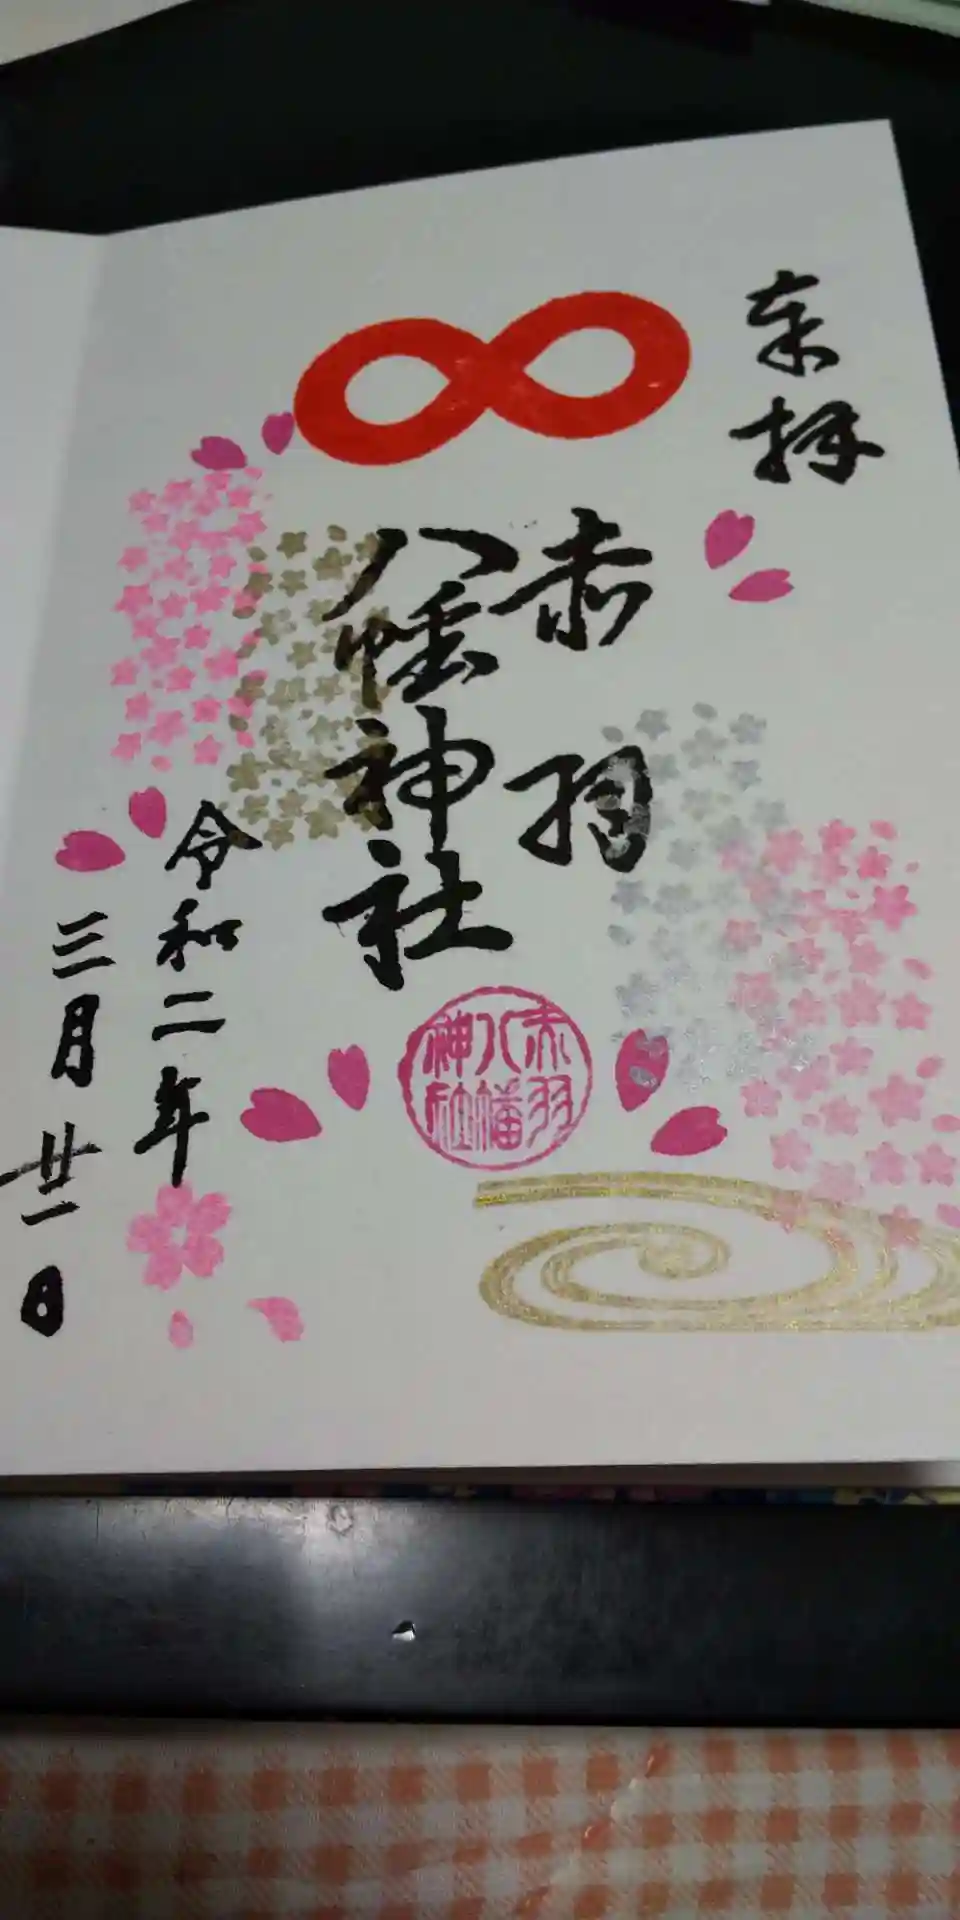 奉拝
赤羽
八幡神社
赤羽
八幡
神社
令和二年
三月廿一日